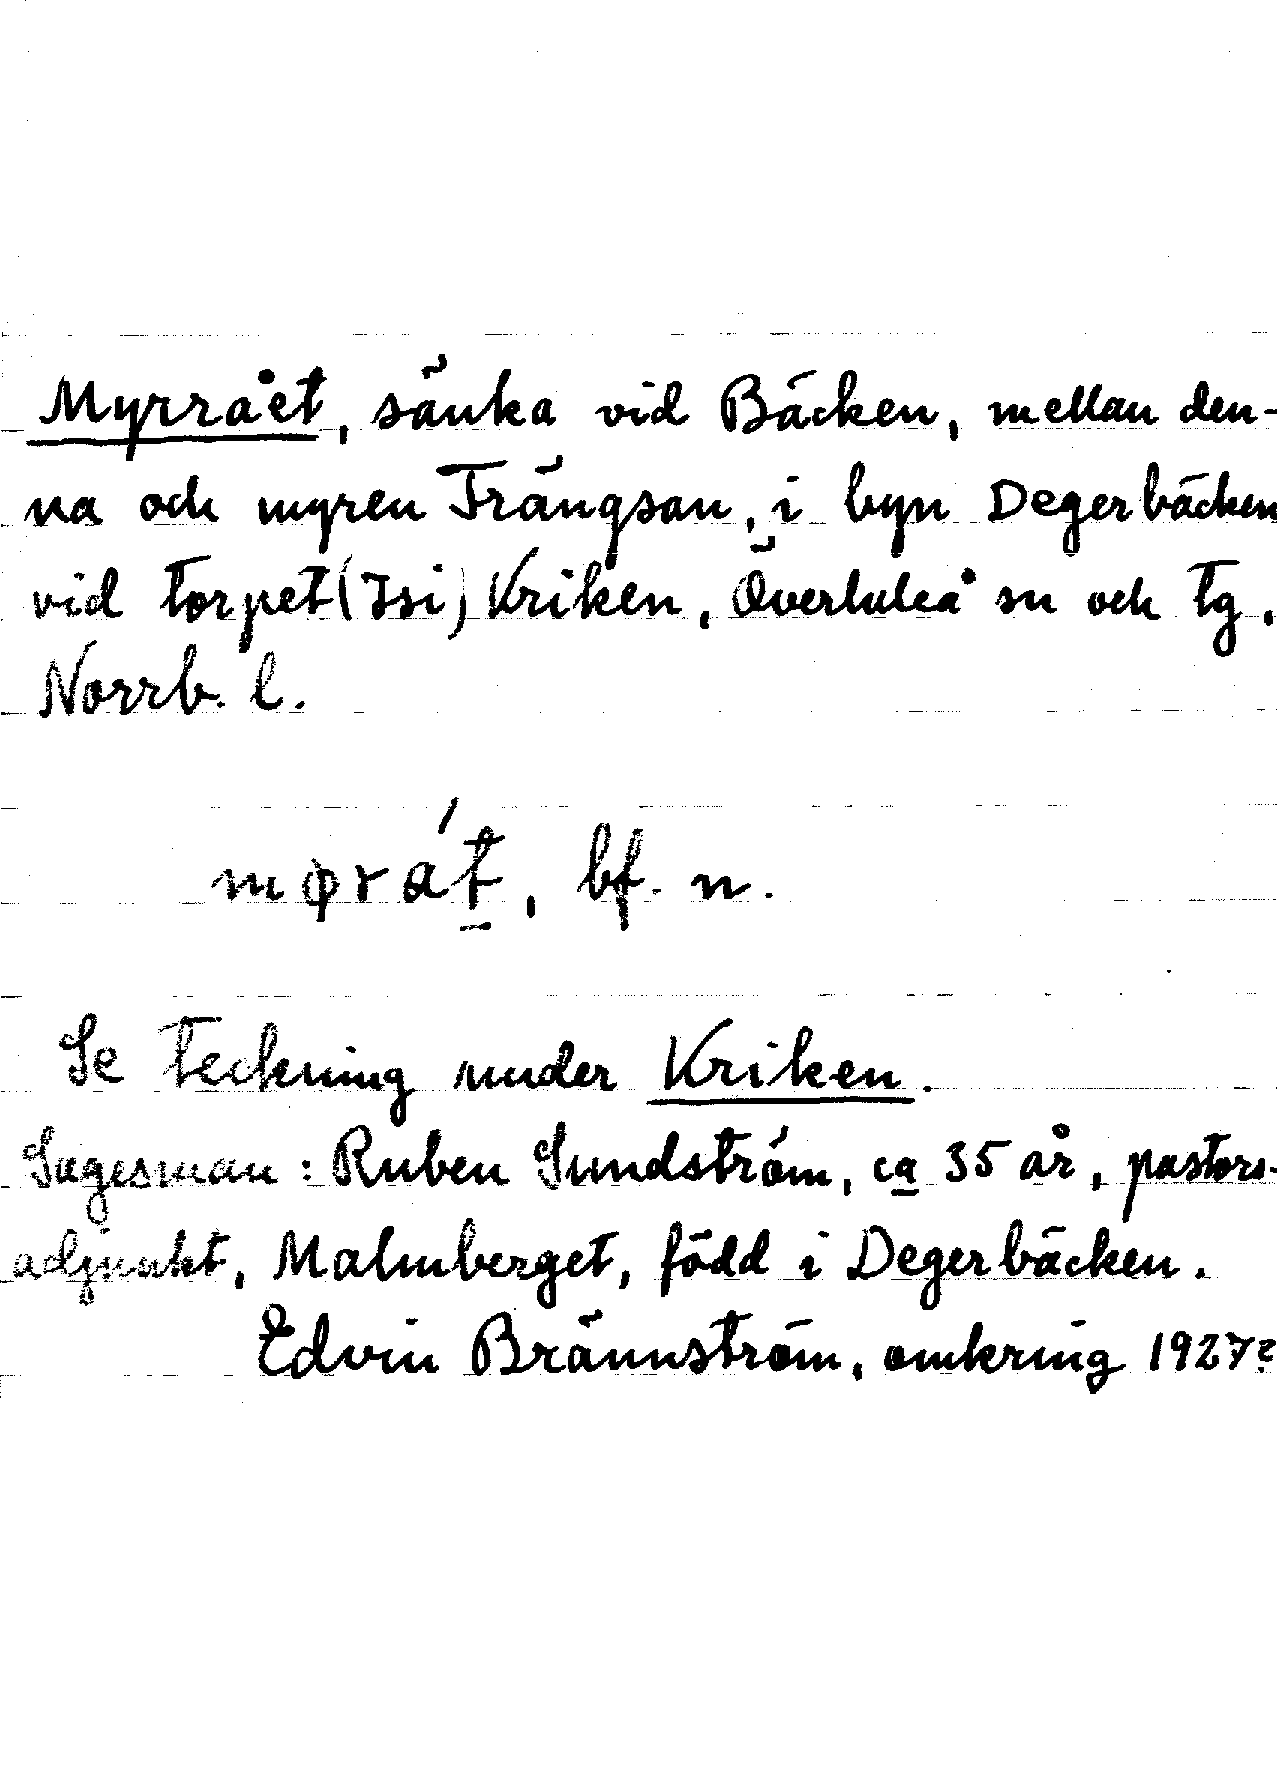 Myrrået, sänka vid Bäcken, mellan den-
na och myren Trängsan, i byn Degerbäcken
vid torpet (Isi) Kriken, Överluleå sn och tg,
Norrb. l.
møra´t, bf. n.
Se teckning under Kriken.
Sagesman: Ruben Sundström, ca 35 år, pastors-
adjunkt, Malmberget, född i Degerbäcken.
Edvin Brännström, omkring 1927?